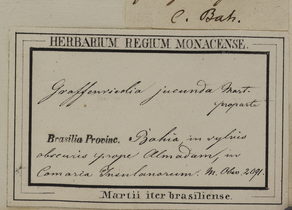 C. Bah.
HERBARIUM REGIUM MONACENSE.
Graffenriedia jucunda Mart.
proparte
Brasilia Provinc. Bahia in sylvis
obscuris prope Almadam, in
Comarca Insulanorum. M. Obs. 2091.
Martii iter brasiliense.